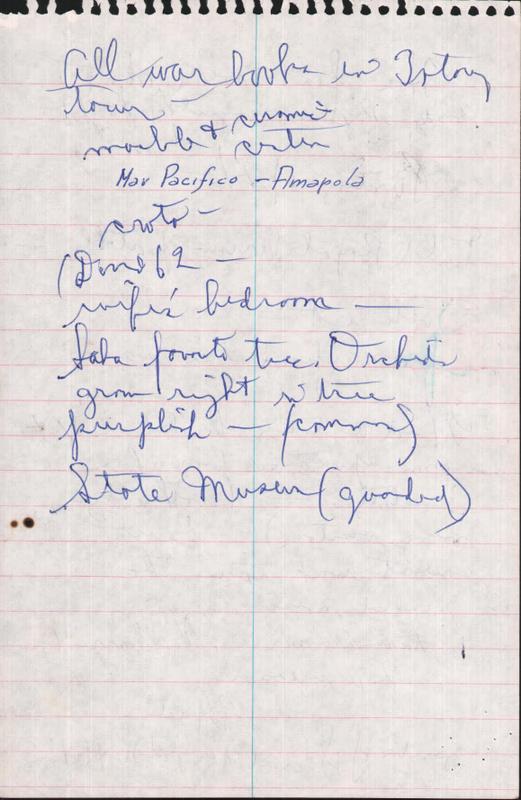 All war books in 3 story
tower —
marble & ceramic
Mar Pacifico - Amapola
croto -
wife's bedroom —
favorite tree. Orchids
grow right in tree
purplish — (common)
State Museum (guarded)